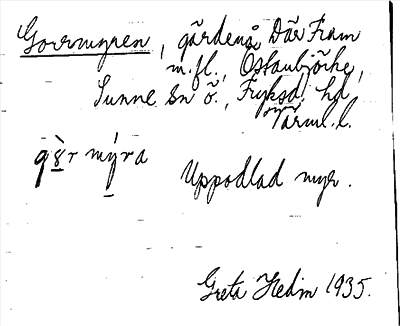 Gorrmyren, gårdena Där Fram
m.fl., Östanbjörke,
Sunne sn ö., Fryksd. hd
Värml. l.
Uppodlad myr.
Greta Hedin 1935.